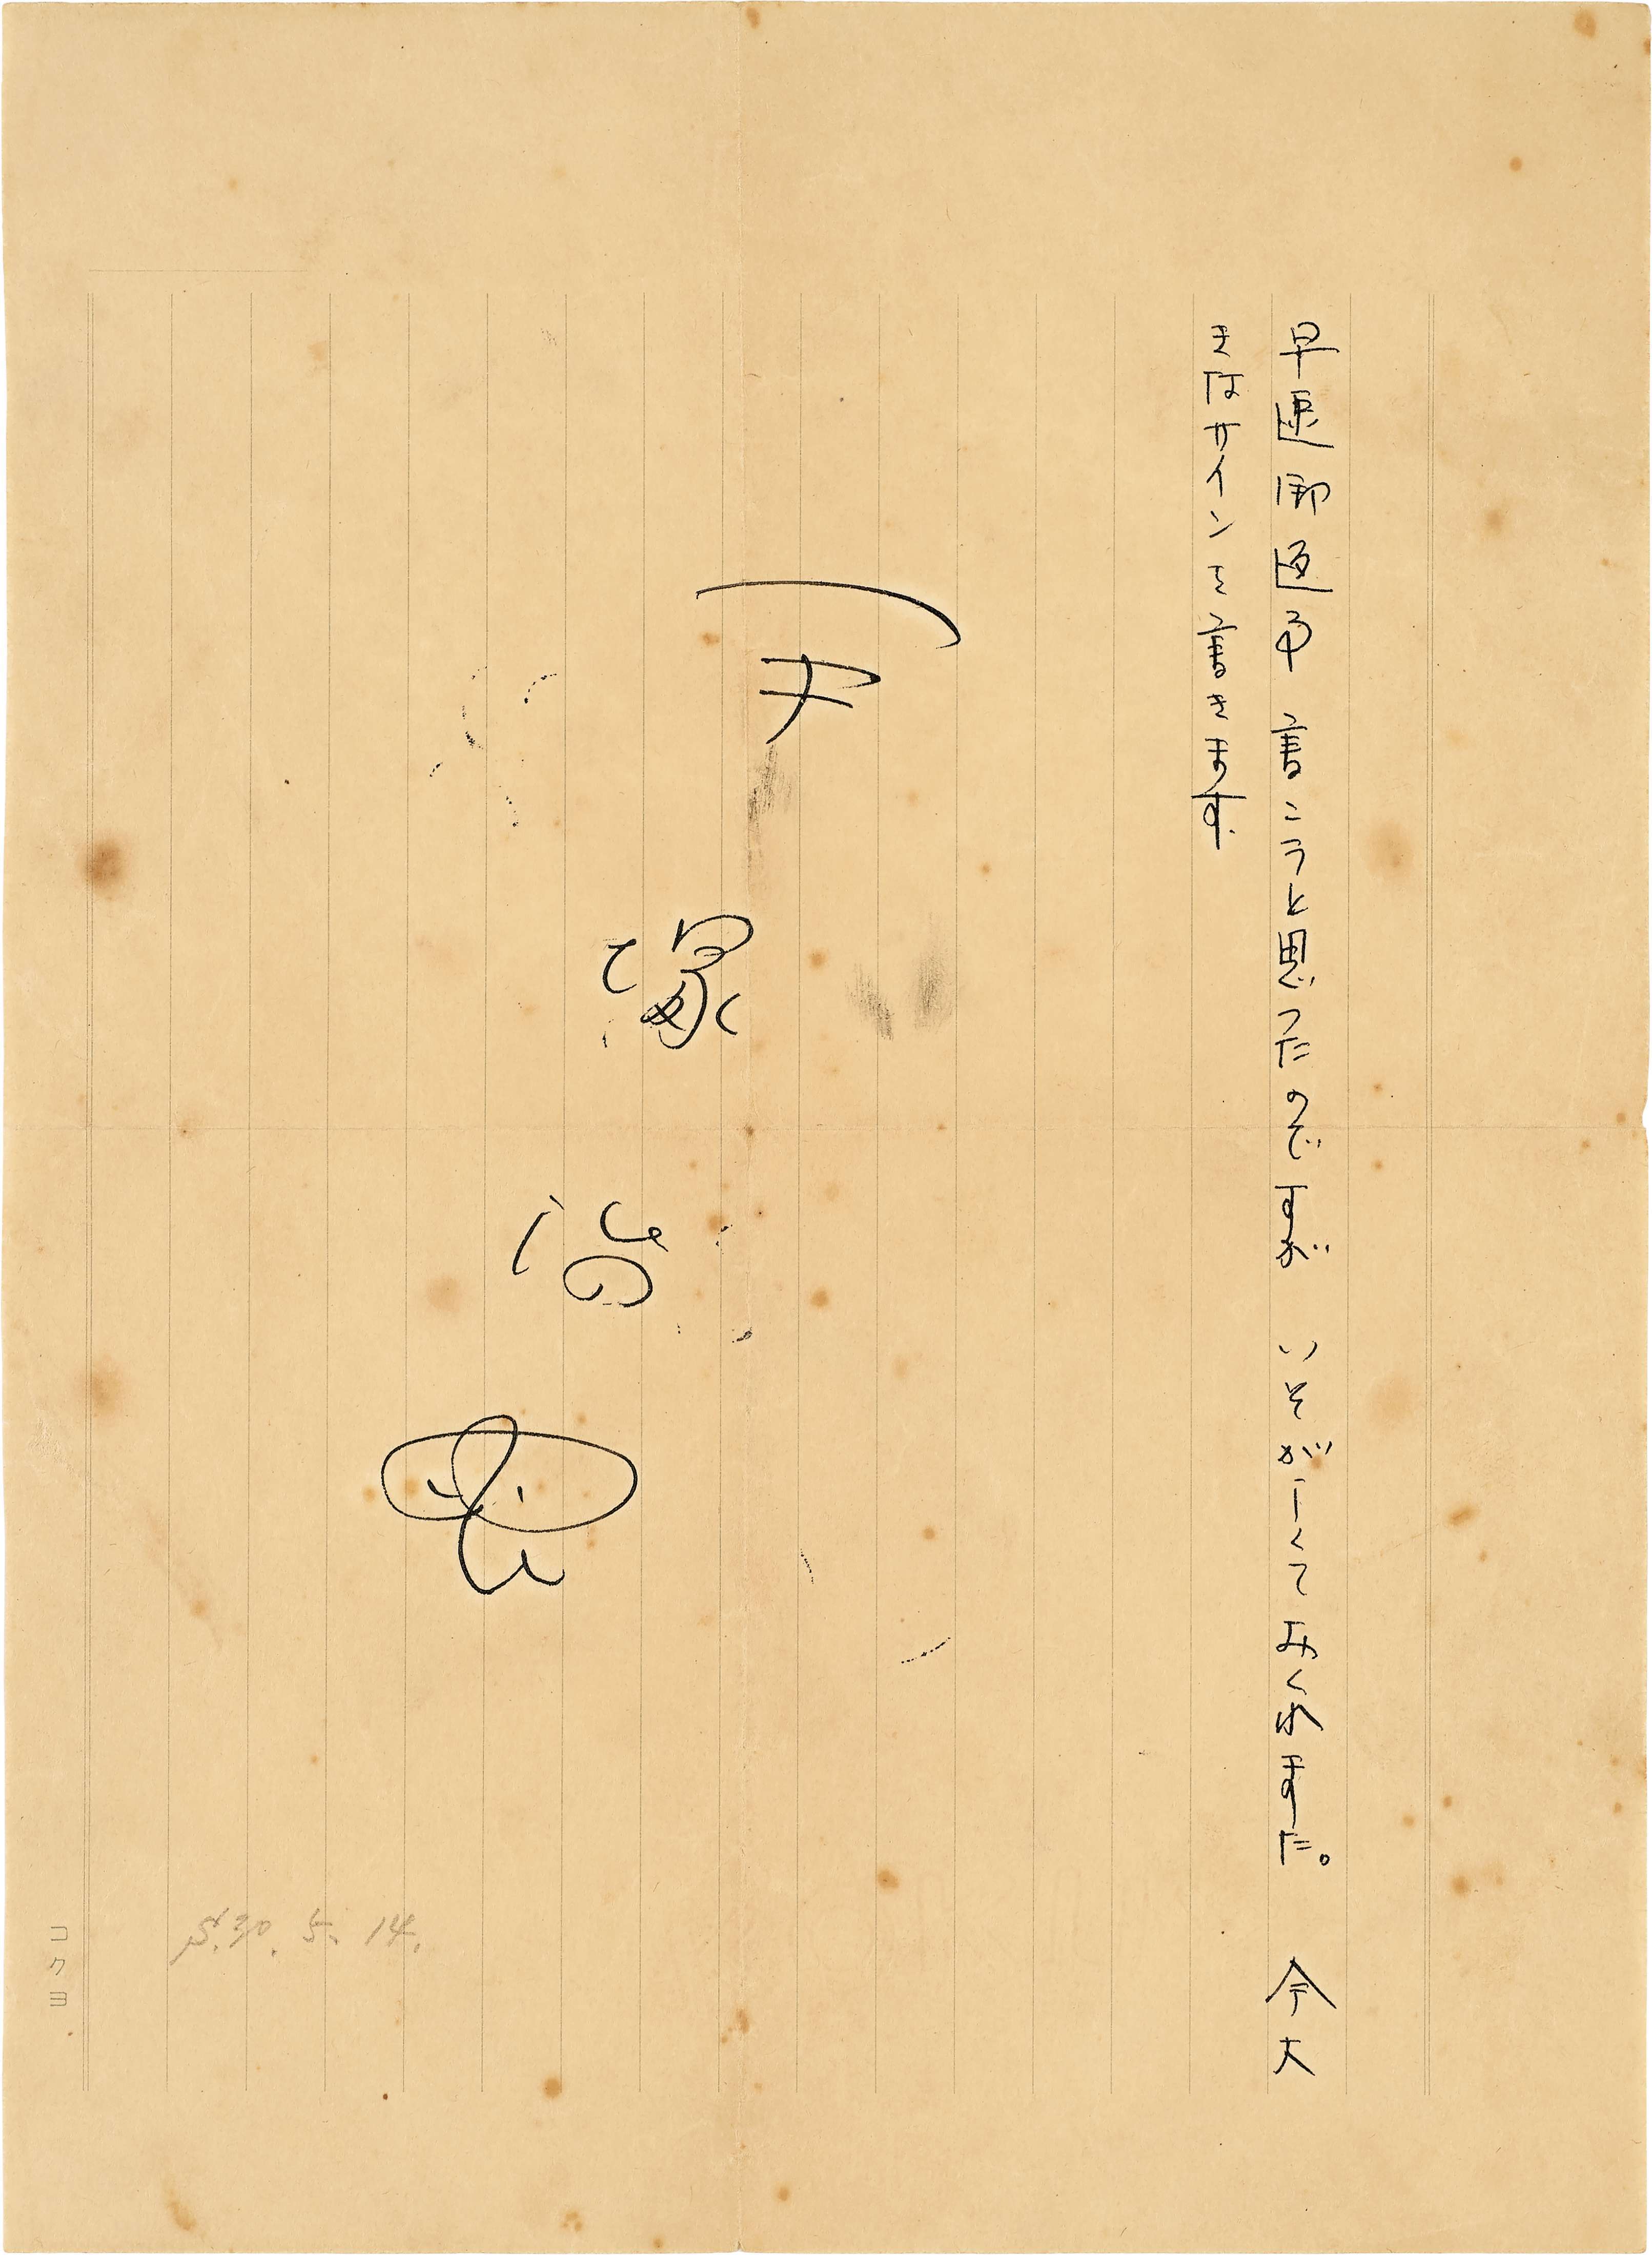 早速御返事書こうと思ったのですが いそがしくておくれました。 今大
きなサインを書きます.
手塚治虫
S.30.5.14.
コクヨ